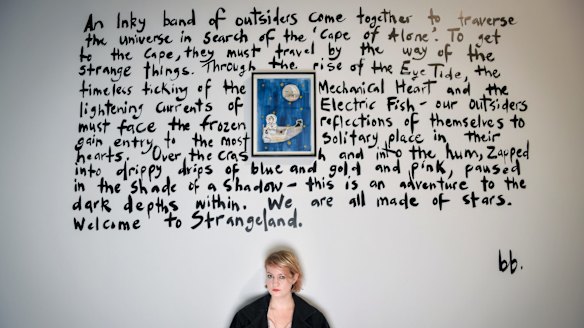 An Inky band of outsiders come together to traverse
the universe in search of the 'Cape of Alone'. To get
to the Cape, they must travel by the way of the
strange things. Through the rise of the Eye Tide, the
timeless ticking of the Mechanical Heart and the
lightening currents of Electric Fish - our outsiders
must face the frozen reflections of themselves to
gain entry to the most Solitary place in their
hearts. Over the cras h and into the hum, Zapped
into drippy drips of blue and gold and pink, paused
in the shade of a shadow - this is an adventure to the
dark depths within. We are all made of stars.
Welcome to Strangeland.
bb.